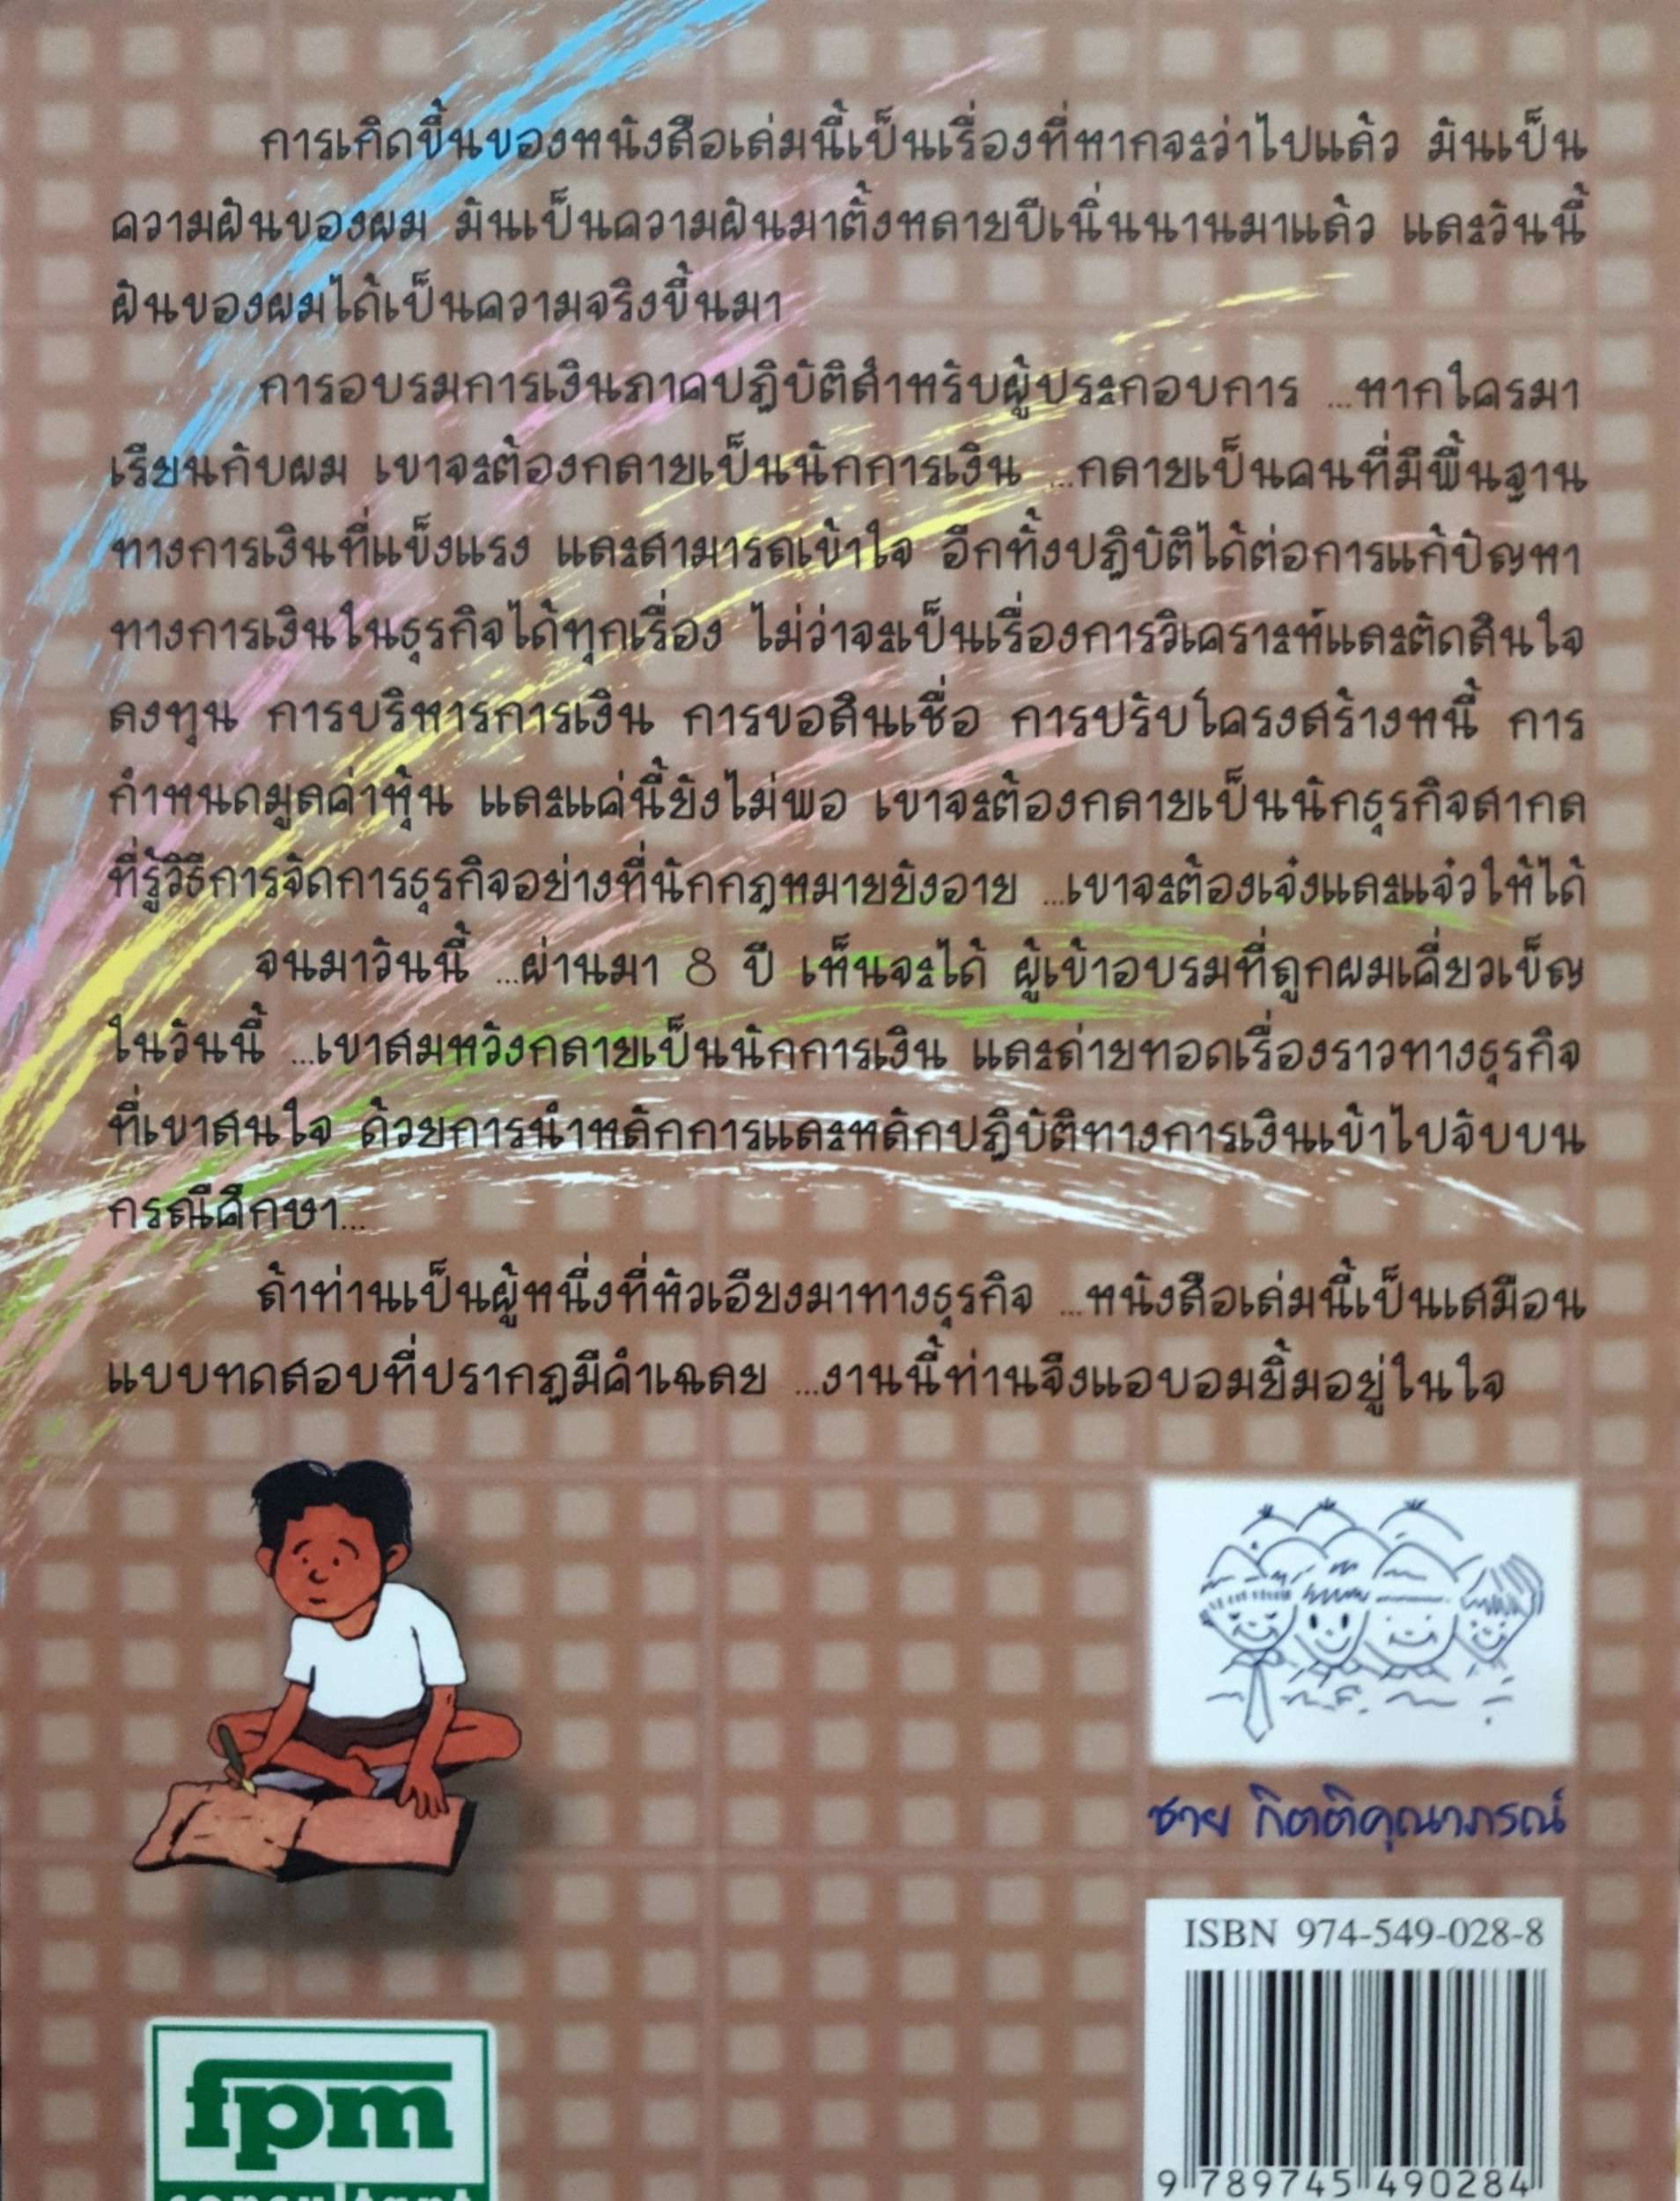 การเกิดขึ้นของหนังสือเล่มนี้เป็นเรื่องที่หากจะว่าไปแล้ว มันเป็น
ความฝันของผม มันเป็นความฝันมาตั้งหลายปีเนิ่นนานมาแล้ว และวันนี้
ฝันของผมได้เป็นความจริงขึ้นมา
การอบรมการเงินภาคปฏิบัติสำหรับผู้ประกอบการ ...หากใครมา
เรียนกับผม เขาจะต้องกลายเป็นนักการเงิน ...กลายเป็นคนที่มีพื้นฐาน
ทางการเงินที่แข็งแรง และสามารถเข้าใจ อีกทั้งปฏิบัติได้ต่อการแก้ปัญหา
ทางการเงินในธุรกิจได้ทุกเรื่อง ไม่ว่าจะเป็นเรื่องการวิเคราะห์และตัดสินใจ
ลงทุน การบริหารการเงิน การขอสินเชื่อ การปรับโครงสร้างหนี้ การ
กำหนดมูลค่าหุ้น และแค่นี้ยังไม่พอ เขาจะต้องกลายเป็นนักธุรกิจสากล
ที่รู้วิธีการจัดการธุรกิจอย่างที่นักกฎหมายยังอาย ...เขาจะต้องเจ๋งและแจ๋วให้ได้
จนมาวันนี้ ...ผ่านมา 8 ปี เห็นจะได้ ผู้เข้าอบรมที่ถูกผมเคี่ยวเข็ญ
ในวันนี้ ...เขาสมหวังกลายเป็นนักการเงิน และถ่ายทอดเรื่องราวทางธุรกิจ
ที่เขาสนใจ ด้วยการนำหลักการและหลักปฏิบัติทางการเงินเข้าไปจับบน
กรณีศึกษา...
ถ้าท่านเป็นผู้หนึ่งที่หัวเอียงมาทางธุรกิจ ...หนังสือเล่มนี้เป็นเสมือน
แบบทดสอบที่ปรากฏมีคำเฉลย ...งานนี้ท่านจึงแอบอมยิ้มอยู่ในใจ
ชาย กิตติคุณาภรณ์
ISBN 974-549-028-8
9 789745 490284
fpm
consultant